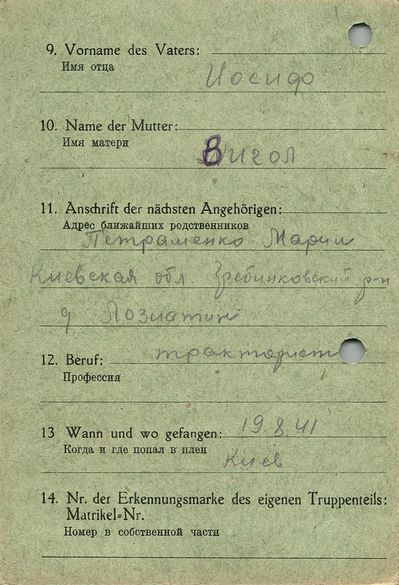 9. Vorname des Vaters:
Имя отца
Иосиф
10. Name der Mutter:
Имя матери
11. Anschrift der nächsten Angehörigen:
Адрес ближайших родственников
Петраменко Марии
Киевская обл. Гребинковский р-н
д Лозиатин
12. Beruf: тракторист
Профессия
13 Wann und wo gefangen: 19.8.41
Когда и где попал в плен
Киев
14. Nr. der Erkennungsmarke des eigenen Truppenteils:
Matrikel-Nr.
Номер в собственной части